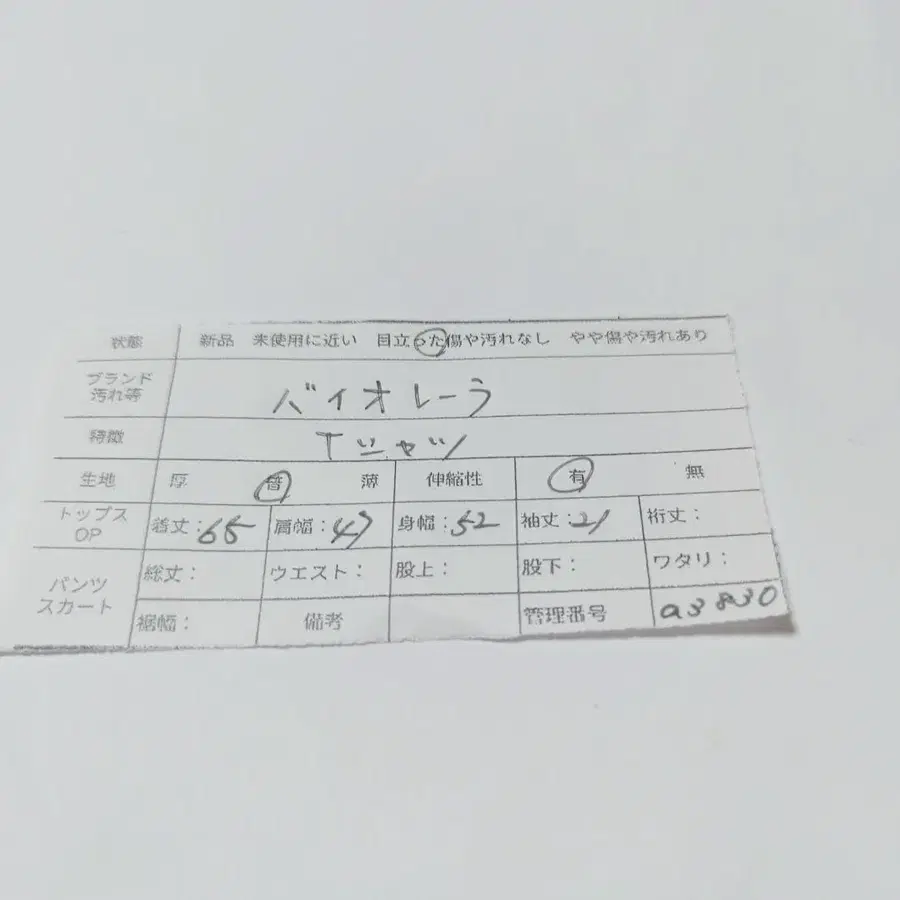 状態 新品 未使用に近い 目立った傷や汚れなし やや傷や汚れあり
ブランド
汚れ等 バイオレーラ
特徴 Tシャツ
生地 厚 普 薄 伸縮性 有 無
トップス
OP 着丈:65 肩幅:47 身幅:52 袖丈:21 裄丈:
パンツ
スカート 総丈: ウエスト: 股上: 股下: ワタリ:
裾幅: 備考 管理番号 a3830